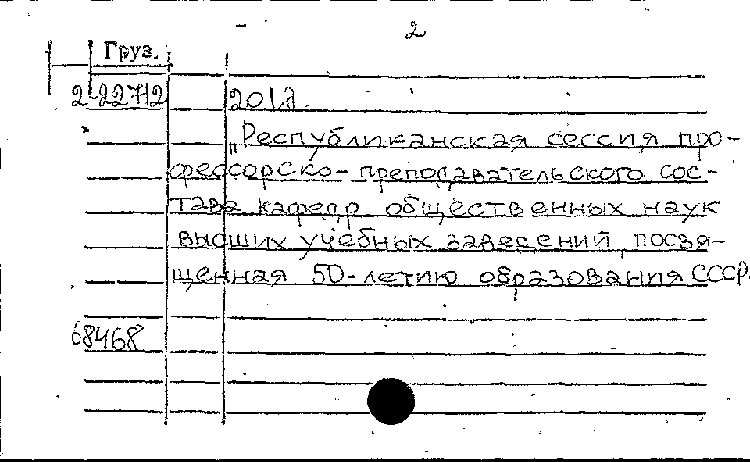 2
Груз.
2-22712
2012.
„Республиканская сессия про-
фессорско-преподавательского сос-
тава кафедр общественных наук
высших учебных заведений, посвя-
щенная 50-летию образования СССР.
68468